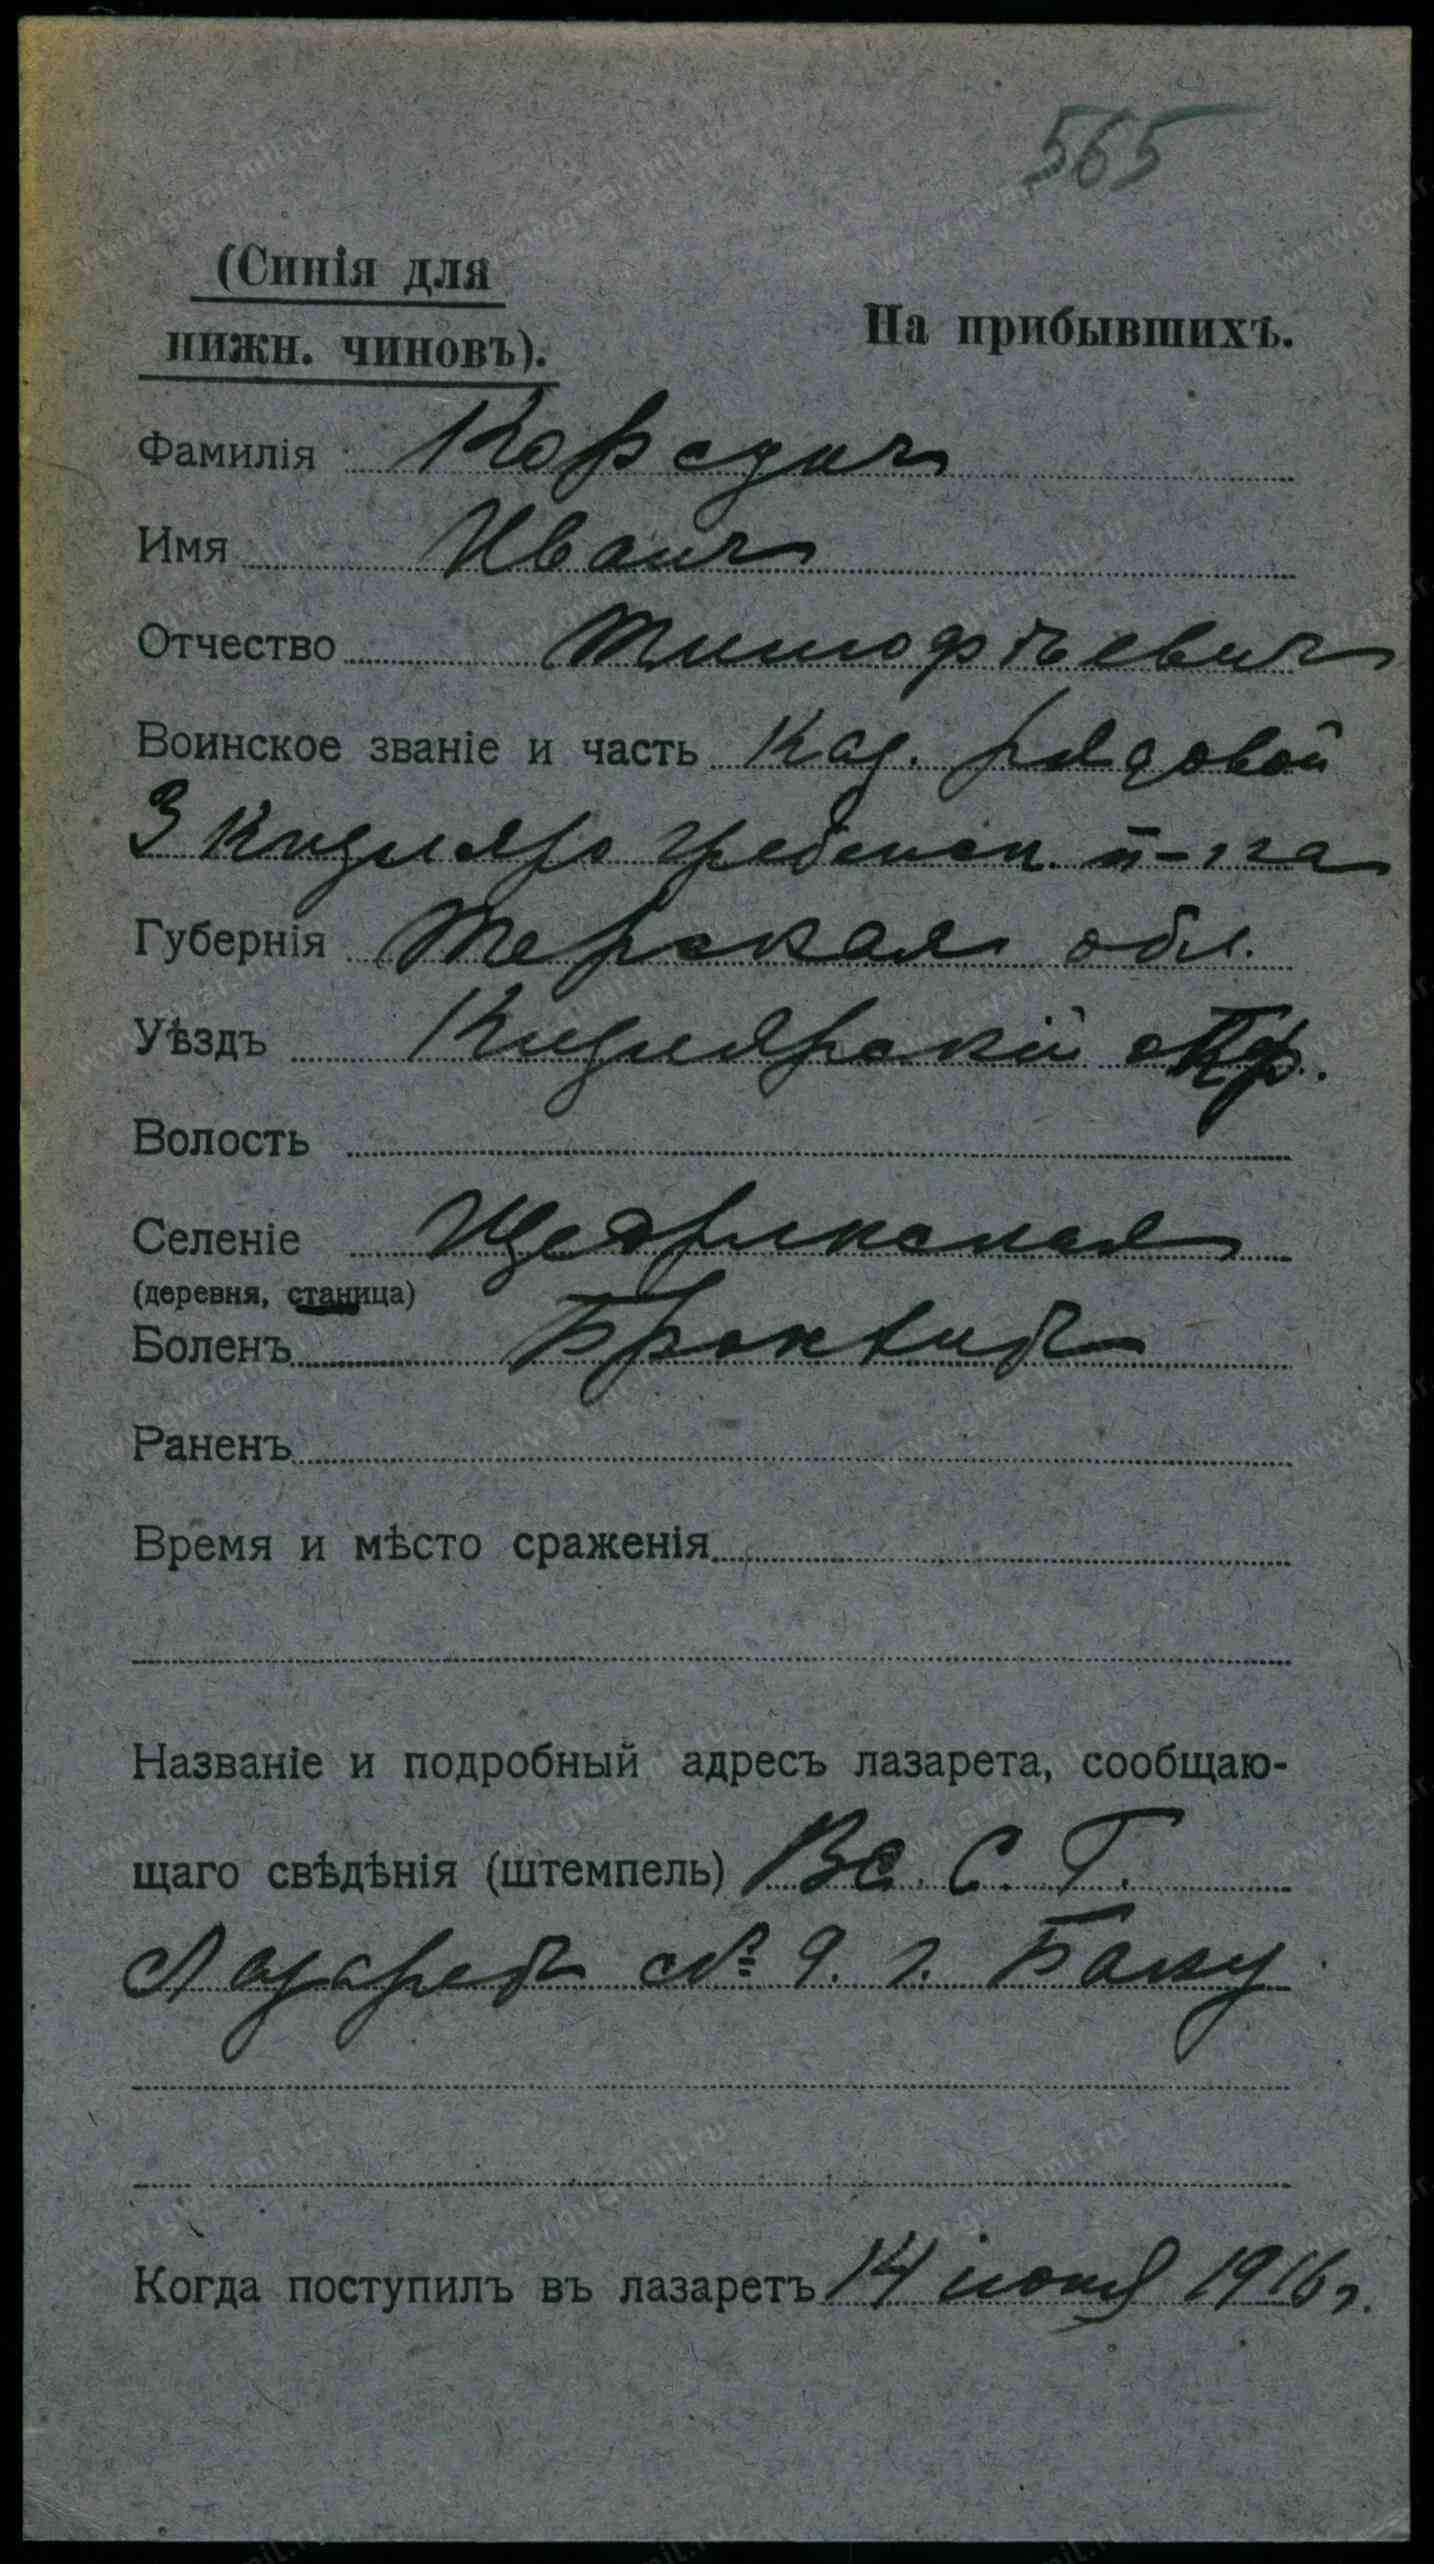 565
(Синія для
нижн. чиновъ).
На прибывшихъ.
Фамилія
Имя Иванъ
Отчество Тимофѣевич
Воинское званіе и часть Каз. рядовой
3 Кизляро гребенск. п-ка
Губернія Терская обл.
Уѣздъ Кизлярскій
Волость
Селеніе Щедринская
(деревня, станица)
Боленъ Бронхитъ
Раненъ
Время и мѣсто сраженія
Названіе и подробный адресъ лазарета, сообщаю-
щаго свѣдѣнія (штемпель) Вс. С. Г.
Лазаретъ № 9. г. Баку
Когда поступилъ въ лазаретъ 14 1916 г.